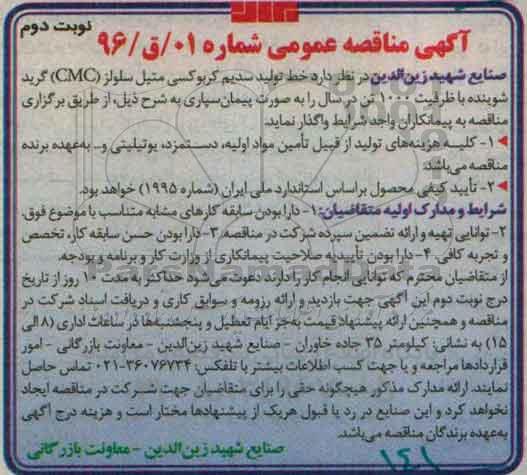 نوبت دوم
آگهی مناقصه عمومی شماره ۰۱/ق/۹۶
صنایع شهید زین‌الدین در نظر دارد خط تولید سدیم کربوکسی متیل سلولز (CMC) گرید
شوینده با ظرفیت ۱۰۰۰ تن در سال را به صورت پیمان‌سپاری به شرح ذیل، از طریق برگزاری
مناقصه به پیمانکاران واجد شرایط واگذار نماید.
۱- کلیه هزینه‌های تولید از قبیل تأمین مواد اولیه، دستمزد، یوتیلیتی و... به‌عهده برنده
مناقصه می‌باشد.
۲- تأیید کیفی محصول براساس استاندارد ملی ایران (شماره ۱۹۹۵) خواهد بود.
شرایط و مدارک اولیه متقاضیان: ۱- دارا بودن سابقه کارهای مشابه متناسب با موضوع فوق.
۲- توانایی تهیه و ارائه تضمین سپرده شرکت در مناقصه. ۳- دارا بودن حسن سابقه کار، تخصص
و تجربه کافی. ۴- دارا بودن تأییدیه صلاحیت پیمانکاری از وزارت کار و برنامه و بودجه.
از متقاضیان محترم که توانایی انجام کار را دارند دعوت می‌شود حداکثر به مدت ۱۰ روز از تاریخ
درج نوبت دوم این آگهی جهت بازدید و ارائه رزومه و سوابق کاری و دریافت اسناد شرکت در
مناقصه و همچنین ارائه پیشنهاد قیمت به‌جز ایام تعطیل و پنجشنبه‌ها در ساعات اداری (۸ الی
۱۵) به نشانی: کیلومتر ۳۵ جاده خاوران - صنایع شهید زین‌الدین - معاونت بازرگانی - امور
قراردادها مراجعه و یا جهت کسب اطلاعات بیشتر با تلفکس: ۳۶۰۷۶۷۳۴-۰۲۱ تماس حاصل
نمایند. ارائه مدارک مذکور هیچگونه حقی را برای متقاضیان جهت شرکت در مناقصه ایجاد
نخواهد کرد و این صنایع در رد یا قبول هریک از پیشنهادها مختار است و هزینه درج آگهی
به‌عهده برندگان مناقصه می‌باشد.
صنایع شهید زین‌الدین - معاونت بازرگانی
۱۴۱